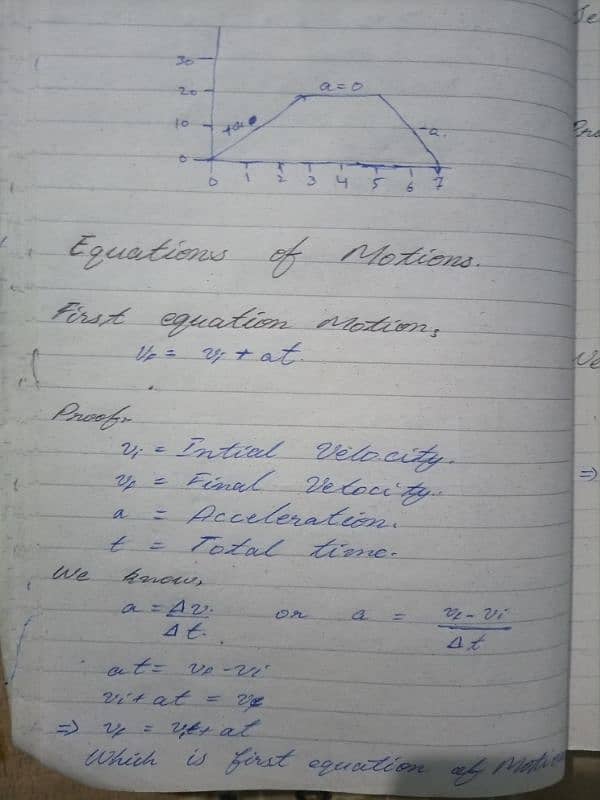 30
20
10
0
a=0
+a
-a.
0 1 2 3 4 5 6 7
Equations of Motions.
First equation Motion,
vf = vi + at.
Proof,
vi = Intial Velocity.
vf = Final Velocity.
a = Acceleration.
t = Total time.
We know,
a = Δv. / Δt. or a = vf - vi / Δt
at = vf - vi
vi + at = vf
⇒ vf = vi + at
Which is first equation of Motion
⇒